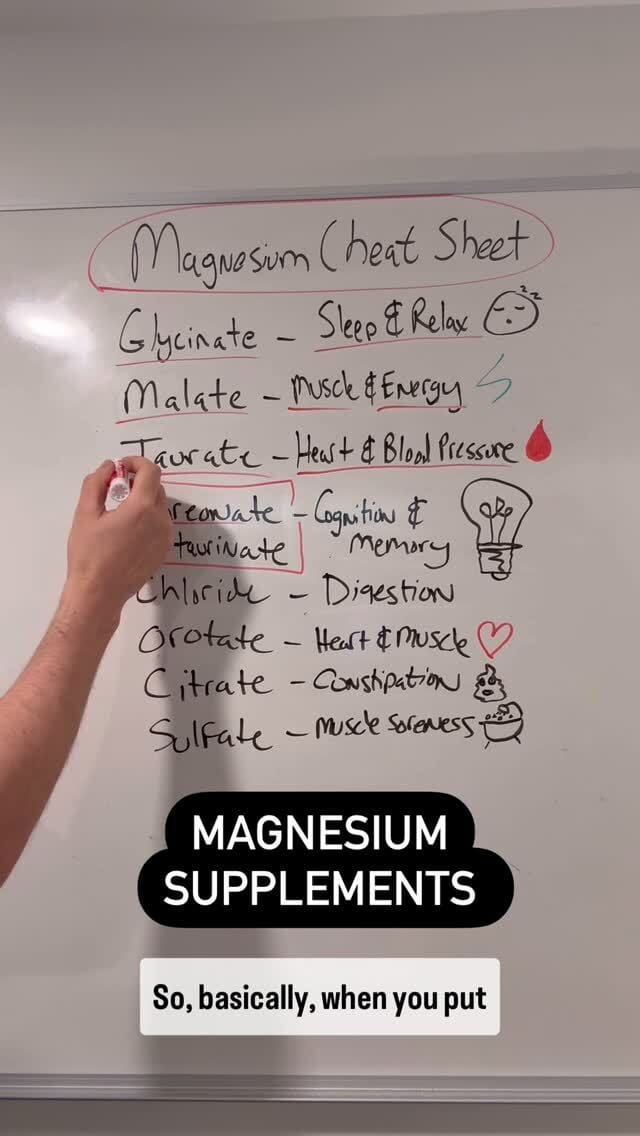 Magnesium Cheat Sheet
Glycinate - Sleep & Relax zzz
Malate - Muscle & Energy
Taurate - Heart & Blood Pressure
reonate - Cognition &
taurinate Memory
Chloride - Digestion
Orotate - Heart & Muscle
Citrate - Constipation
Sulfate - Muscle Soreness
MAGNESIUM
SUPPLEMENTS
So, basically, when you put